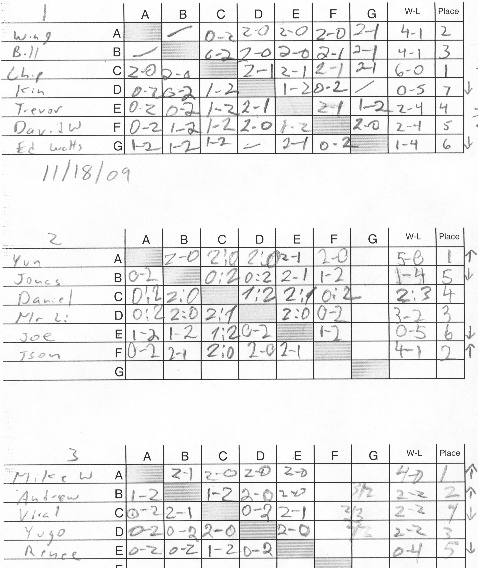 1 A B C D E F G W-L Place
Wing A / 0-2 2-0 2-0 2-0 2-1 4-1 2
Bill B / 0-2 2-0 2-0 2-1 2-1 4-1 3
Chip C 2-0 2-0 2-1 2-1 2-1 2-1 6-0 1
Kin D 0-2 0-2 1-2 1-2 0-2 / 0-5 7 ↓
Trevor E 0-2 0-2 1-2 2-1 2-1 1-2 2-4 4
David W F 0-2 1-2 1-2 2-0 1-2 2-0 2-4 5
Ed Watts G 1-2 1-2 1-2 — 2-1 0-2 1-4 6 ↓
11/18/09
2 A B C D E F G W-L Place
Yun A 2-0 2:0 2:0 2-1 2-0 5-0 1 ↑
Jonas B 0-2 0:2 0:2 2-1 1-2 1-4 5 ↓
Daniel C 0:2 2:0 1:2 2:1 0:2 2:3 4
Mr Li D 0:2 2:0 2:1 2:0 0-2 3-2 3
Joe E 1-2 1-2 1:2 0-2 1-2 0-5 6 ↓
Json F 0-2 2-1 2:0 2-0 2-1 4-1 2 ↑
G
3 A B C D E F G W-L Place
Mike W A 2-1 2-0 2-0 2-0 4-0 1 ↑
Andrew B 1-2 1-2 2-0 2-0 2-2 2 ↑
Viral C 0-2 2-1 0-2 2-1 2-2 4 ↓
Yugo D 0-2 0-2 2-0 2-0 2-2 3
Renee E 0-2 0-2 1-2 0-2 0-4 5 ↓